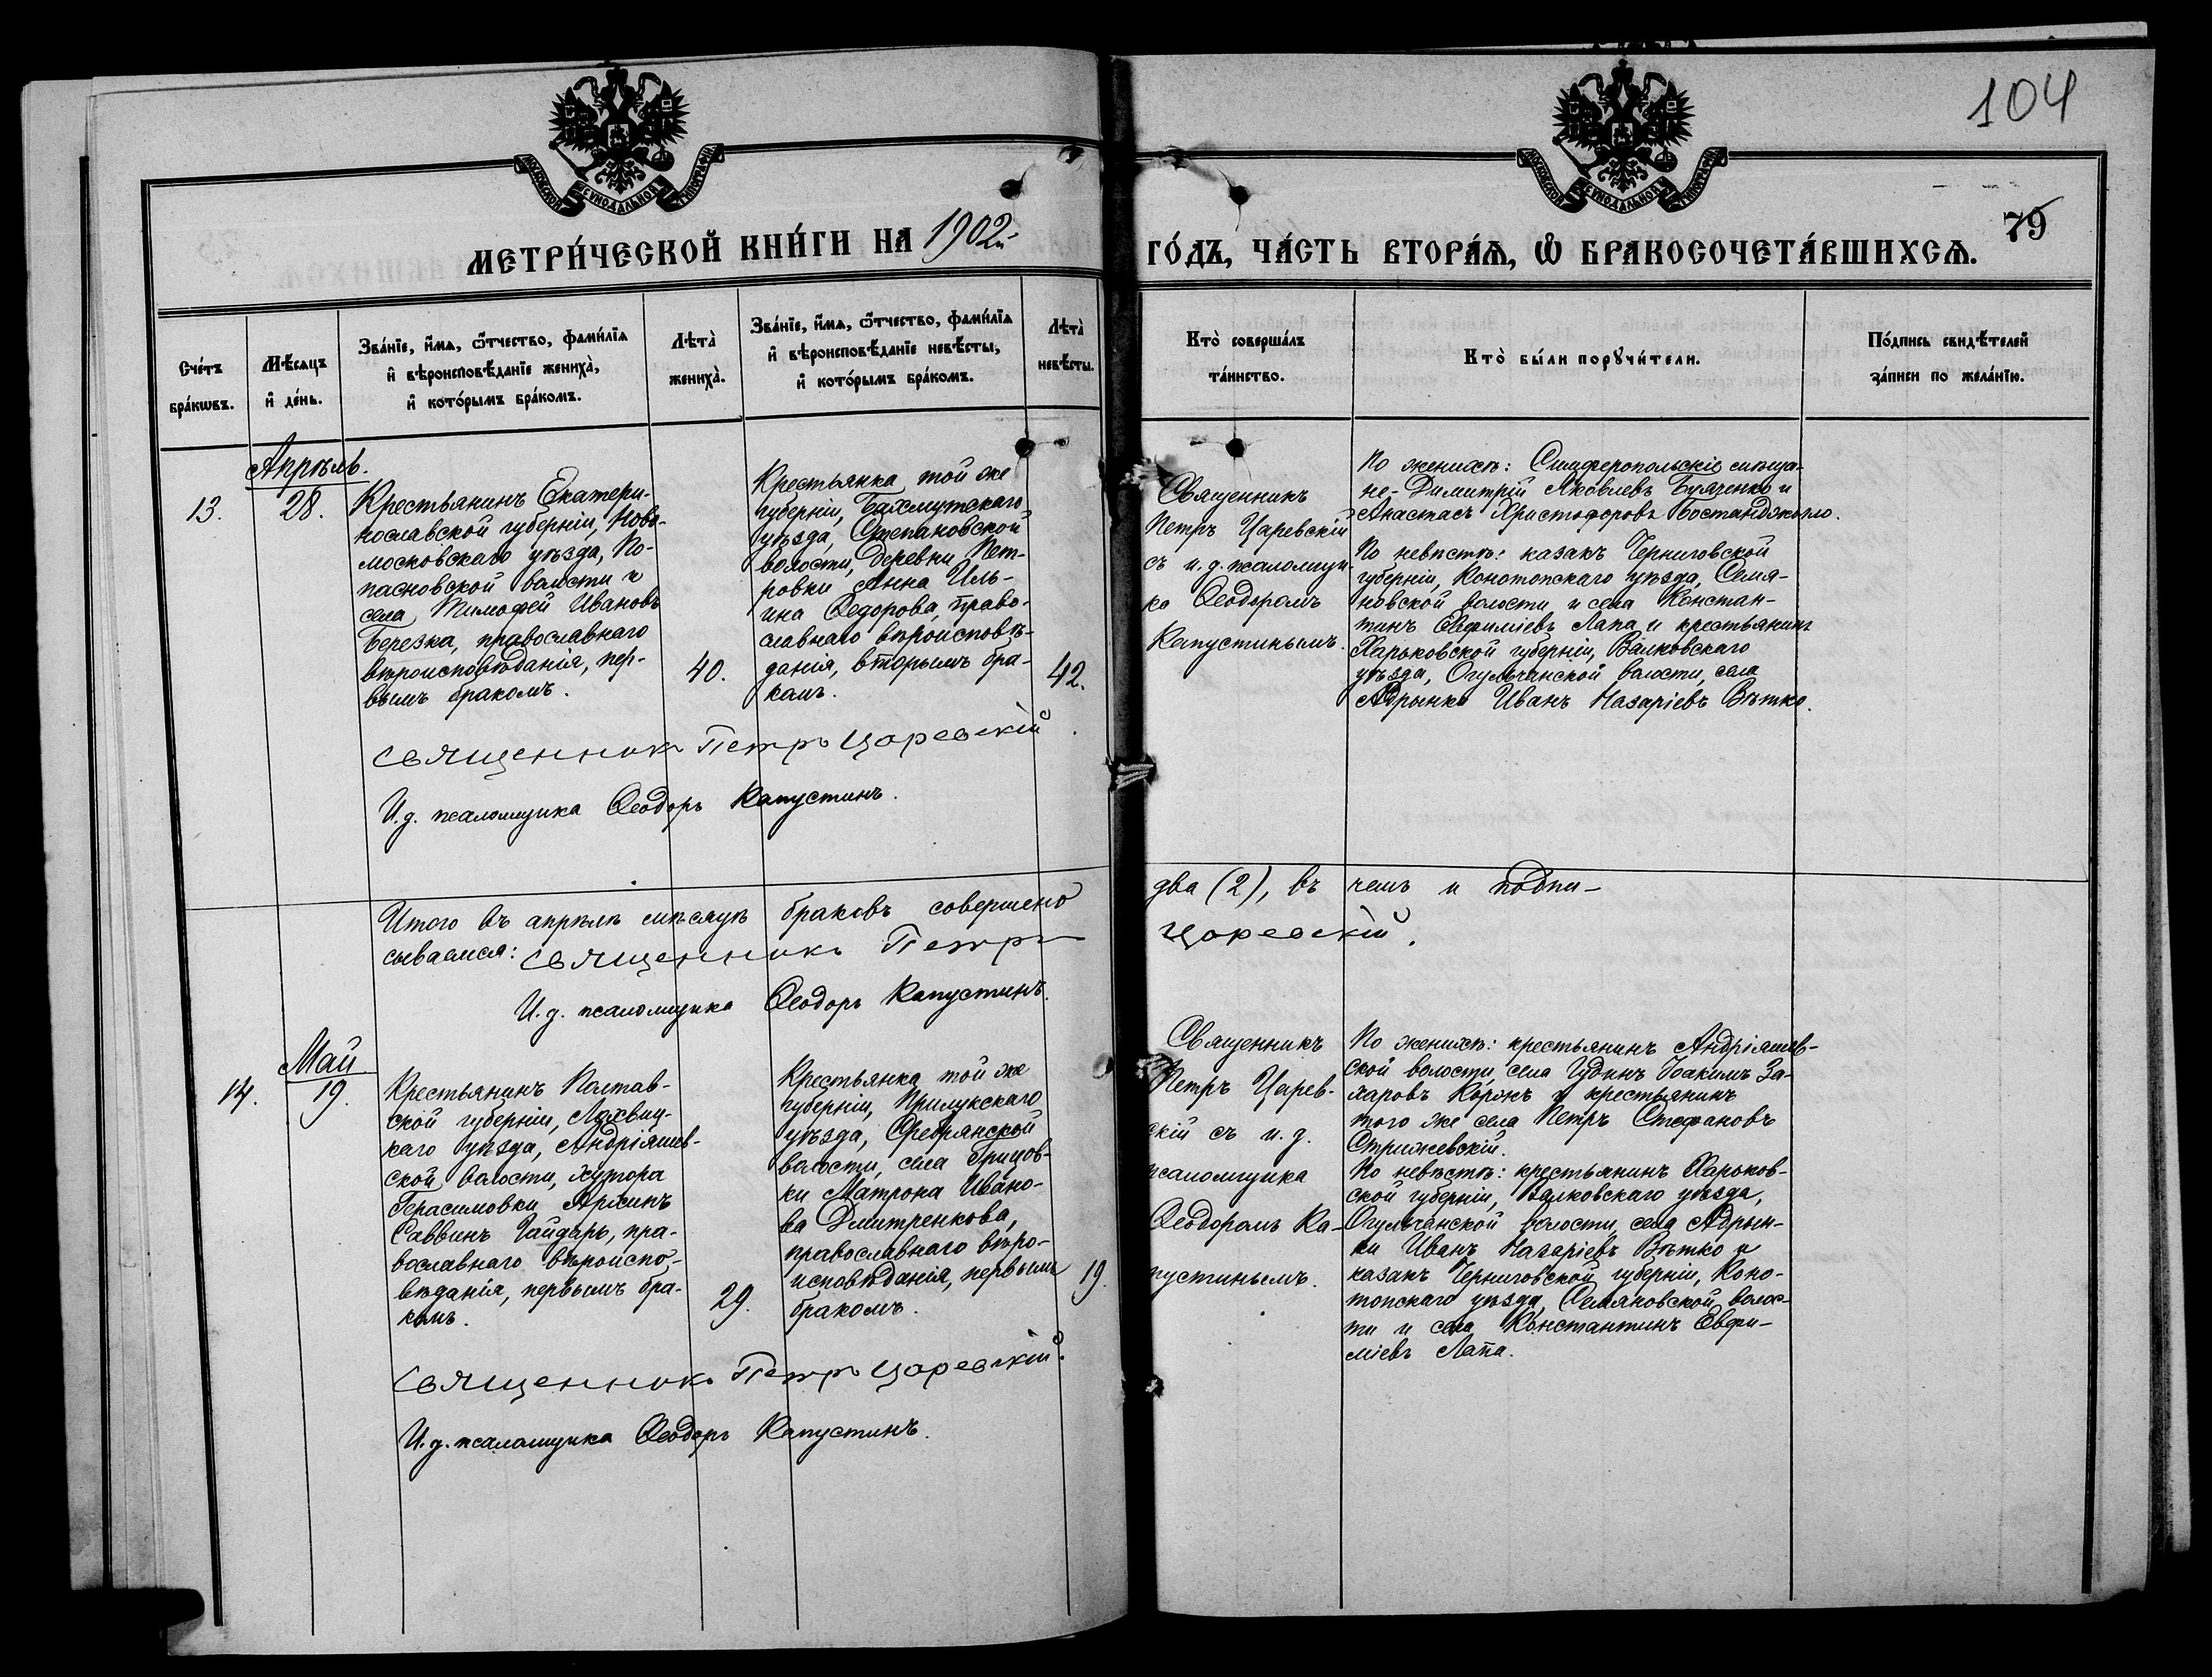 104
79
МОСКОВСКОЙ СѴНОДАЛЬНОЙ ТИПОГРАФІИ
МОСКОВСКОЙ СѴНОДАЛЬНОЙ ТИПОГРАФІИ
МЕТРИ́ЧЕСКОЙ КНИ́ГИ НА 1902й
ГО́ДЪ, ЧА́СТЬ ВТОРА́Ѧ, Ѡ҆ БРАКОСОЧЕТА́ВШИХСѦ.
Сче́тъ
бра́кωвъ.
Мѣ́сяцъ
и҆ де́нь.
Зва́нїе, и҆́мѧ, ѻ҆́тчество, фами́лїѧ
и҆ вѣроисповѣ́данїе жениха̀,
и҆ кото́рымъ бра́комъ.
Лѣта̀
жениха̀.
Зва́нїе, и҆́мѧ, ѻ҆́тчество, фами́лїѧ
и҆ вѣроисповѣ́данїе невѣ́сты,
и҆ кото́рымъ бра́комъ.
Лѣта̀
невѣ́сты.
Кто̀ соверша́лъ
та́инство.
Кто̀ бы́ли порꙋчи́тели.
По́дпись свидѣ́телей
за́писи по жела́нїю.
Апрѣль.
13.
28.
Крестьянинъ Екатери-
нославской губерніи, Ново-
московскаго уѣзда, По-
пасновской волости и
села Тимофей Ивановъ
Березка, православнаго
вѣроисповѣданія, пер-
вымъ бракомъ.
40.
Крестьянка той же
губерніи, Бахмутскаго
уѣзда, Степановской
волости, деревни Пет-
ровки Анна Иль-
ина Ѳедорова, право-
славнаго вѣроисповѣ-
данія, вторымъ бра-
комъ.
42.
Священникъ
Петръ Царевскій
съ и.д. псаломщи-
ка Ѳеодоромъ
Капустинымъ.
По женихѣ: Симферопольскіе мѣща-
не- Димитрій Яковлевъ и
Анастасъ Христофоровъ Бостанджогло.
По невѣстѣ: казакъ Черниговской
губерніи, Конотопскаго уѣзда, Семя-
новской волости и села Констан-
тинъ Евфиміевъ Лапа и крестьянинъ
Харьковской губерніи, Валковскаго
уѣзда, Огульчанской волости, села
Адрынки Иванъ Назаріевъ Вѣтко.
Священникъ Петръ Царевскій.
И.д. псаломщика Ѳеодоръ Капустинъ.
Итого въ апрѣлѣ мѣсяцѣ браковъ совершено
два (2), въ чемъ и подпи-
сываемся: Священникъ Петръ
Царевскій.
И.д. псаломщика Ѳеодоръ Капустинъ.
Май
14.
19.
Крестьянинъ Полтав-
ской губерніи, Лохвиц-
каго уѣзда, Андріяшев-
ской волости, хутора
Герасимовки Архипъ
Саввинъ Гайдарь, пра-
вославнаго вѣроиспо-
вѣданія, первымъ бра-
комъ.
29.
Крестьянка той же
губерніи, Прилукскаго
уѣзда, Сребрянской
волости, села Грицов-
ки Матрона Ивано-
ва Дмитренкова,
православнаго вѣро-
исповѣданія, первымъ
бракомъ.
19.
Священникъ
Петръ Царев-
скій съ и.д.
псаломщика
Ѳеодоромъ Ка-
пустинымъ.
По женихѣ: крестьянинъ Андріяшев-
ской волости, села Гудинъ Іоакимъ За-
харовъ Коронъ и крестьянинъ
того же села Петръ Стефановъ
Стрижевскій.
По невѣстѣ: крестьянинъ Харьков-
ской губерніи, Валковскаго уѣзда,
Огульчанской волости, села Адрын-
ки Иванъ Назаріевъ Вѣтко и
казакъ Черниговской губерніи, Коно-
топскаго уѣзда, Семяновской волос-
ти и села Константинъ Евфи-
міевъ Лапа.
Священникъ Петръ Царевскій.
И.д. псаломщика Ѳеодоръ Капустинъ.